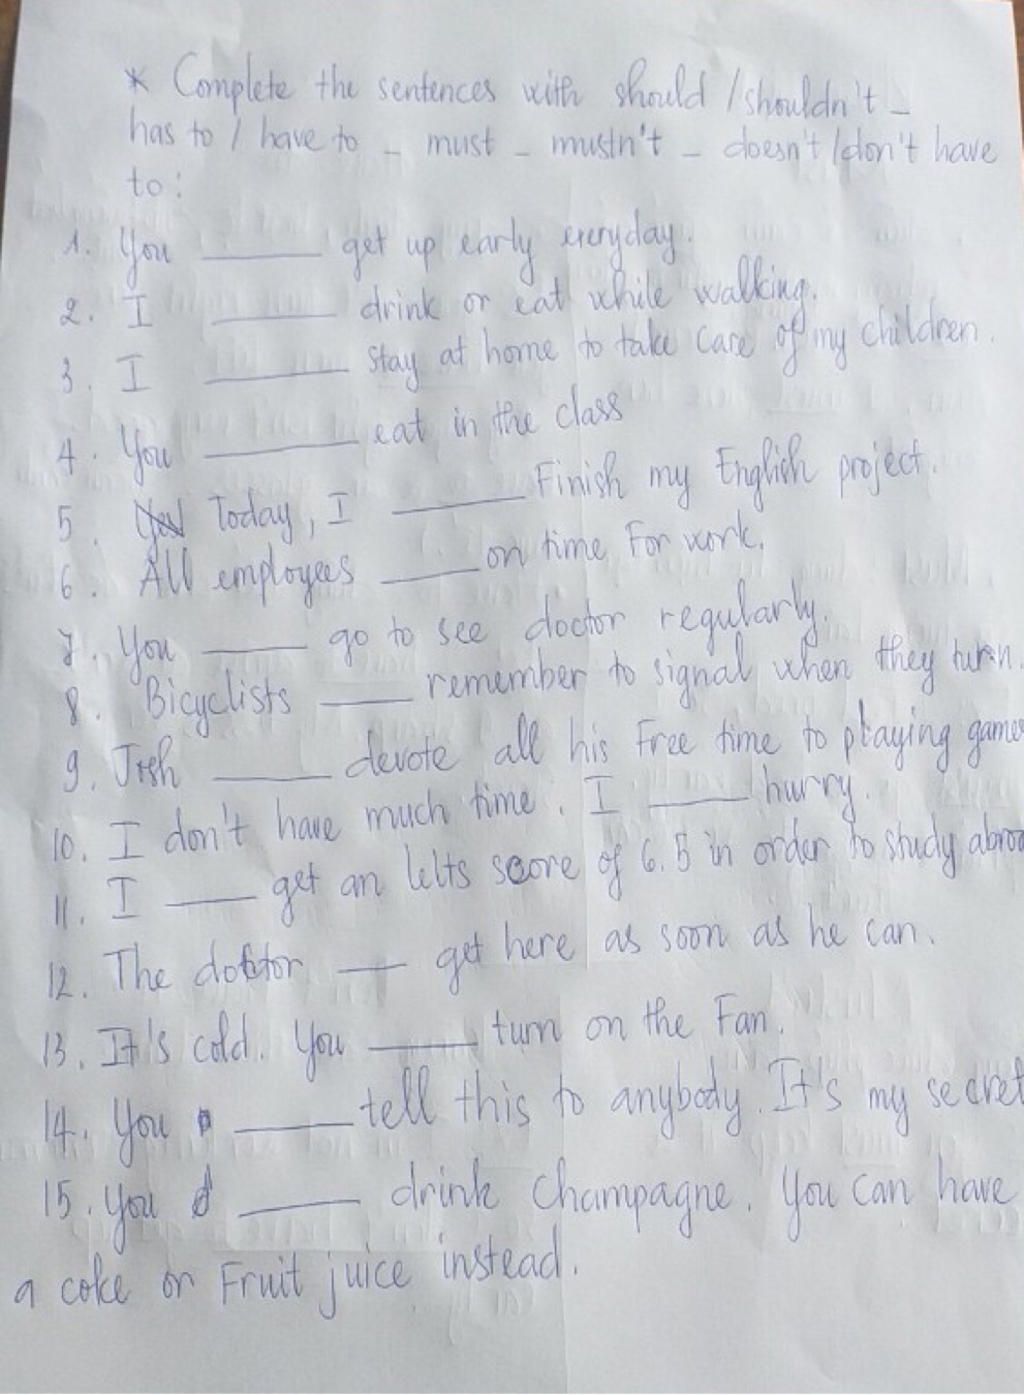 * Complete the sentences with should / shouldn't -
has to / have to - must - mustn't - doesn't / don't have
to :
1. You ______ get up early everyday.
2. I ______ drink or eat while walking.
3. I ______ stay at home to take care of my children.
4. You ______ eat in the class
5. Today, I ______ Finish my English project.
6. All employees ______ on time For work.
7. You ______ go to see doctor regularly.
8. Bicyclists ______ remember to signal when they turn.
9. Josh ______ devote all his Free time to playing games
10. I don't have much time. I ______ hurry.
11. I ______ get an Ielts score of 6.5 in order to study abroa
12. The doctor ______ get here as soon as he can.
13. It's cold. You ______ turn on the Fan.
14. You ______ tell this to anybody. It's my secret
15. You ______ drink Champagne. You can have
a coke or Fruit juice instead.